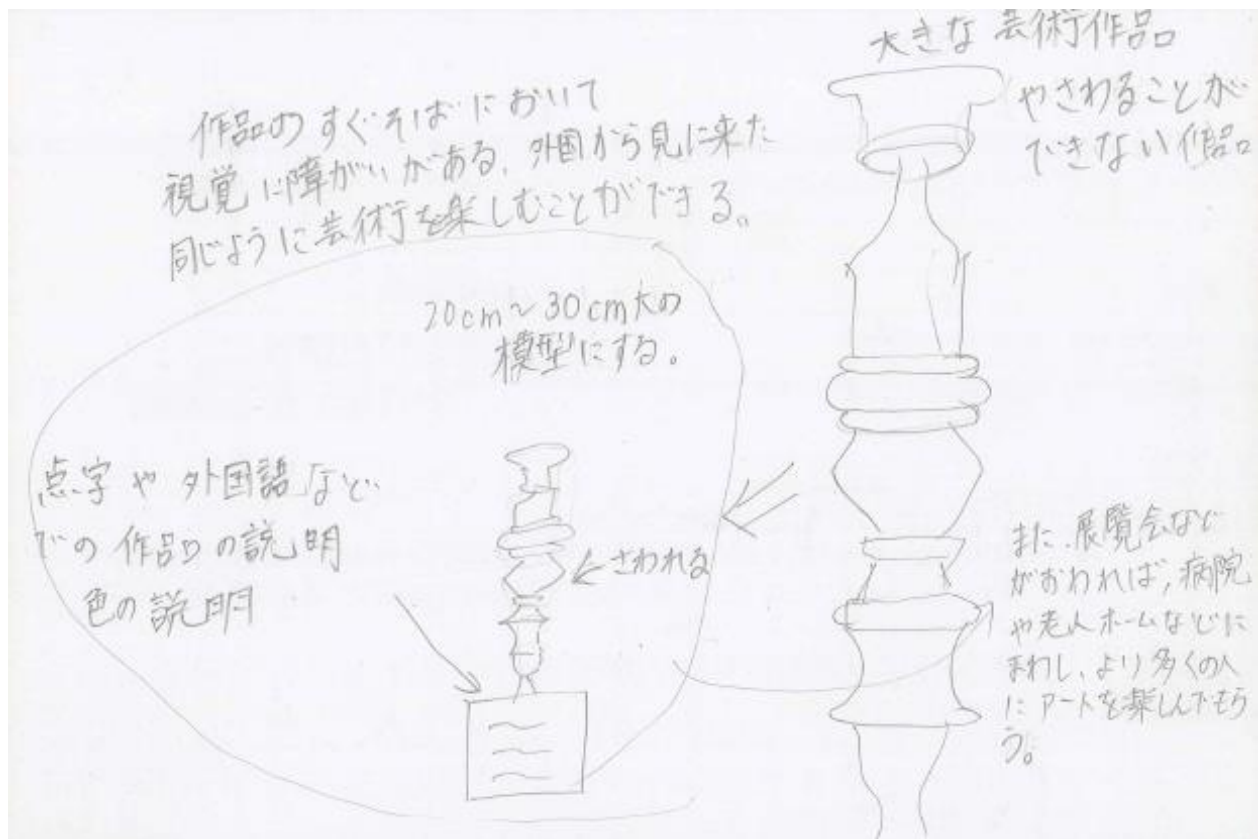 大きな芸術作品
やさわることが
できない作品
作品のすぐそばにおいて
視覚に障がいがある、外国から見に来た
同じように芸術を楽しむことができる。
20cm~30cm大の
模型にする。
点字や外国語など
での作品の説明
色の説明
さわれる
また、展覧会など
がおわれば、病院
や老人ホームなどに
まわし、より多くの人
にアートを楽しんでもら
う。